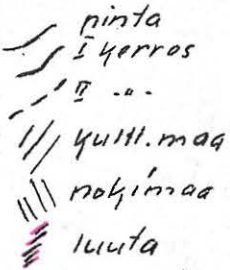 pinta
I kerros
II -"-
kultt.maa
nokimaa
luuta